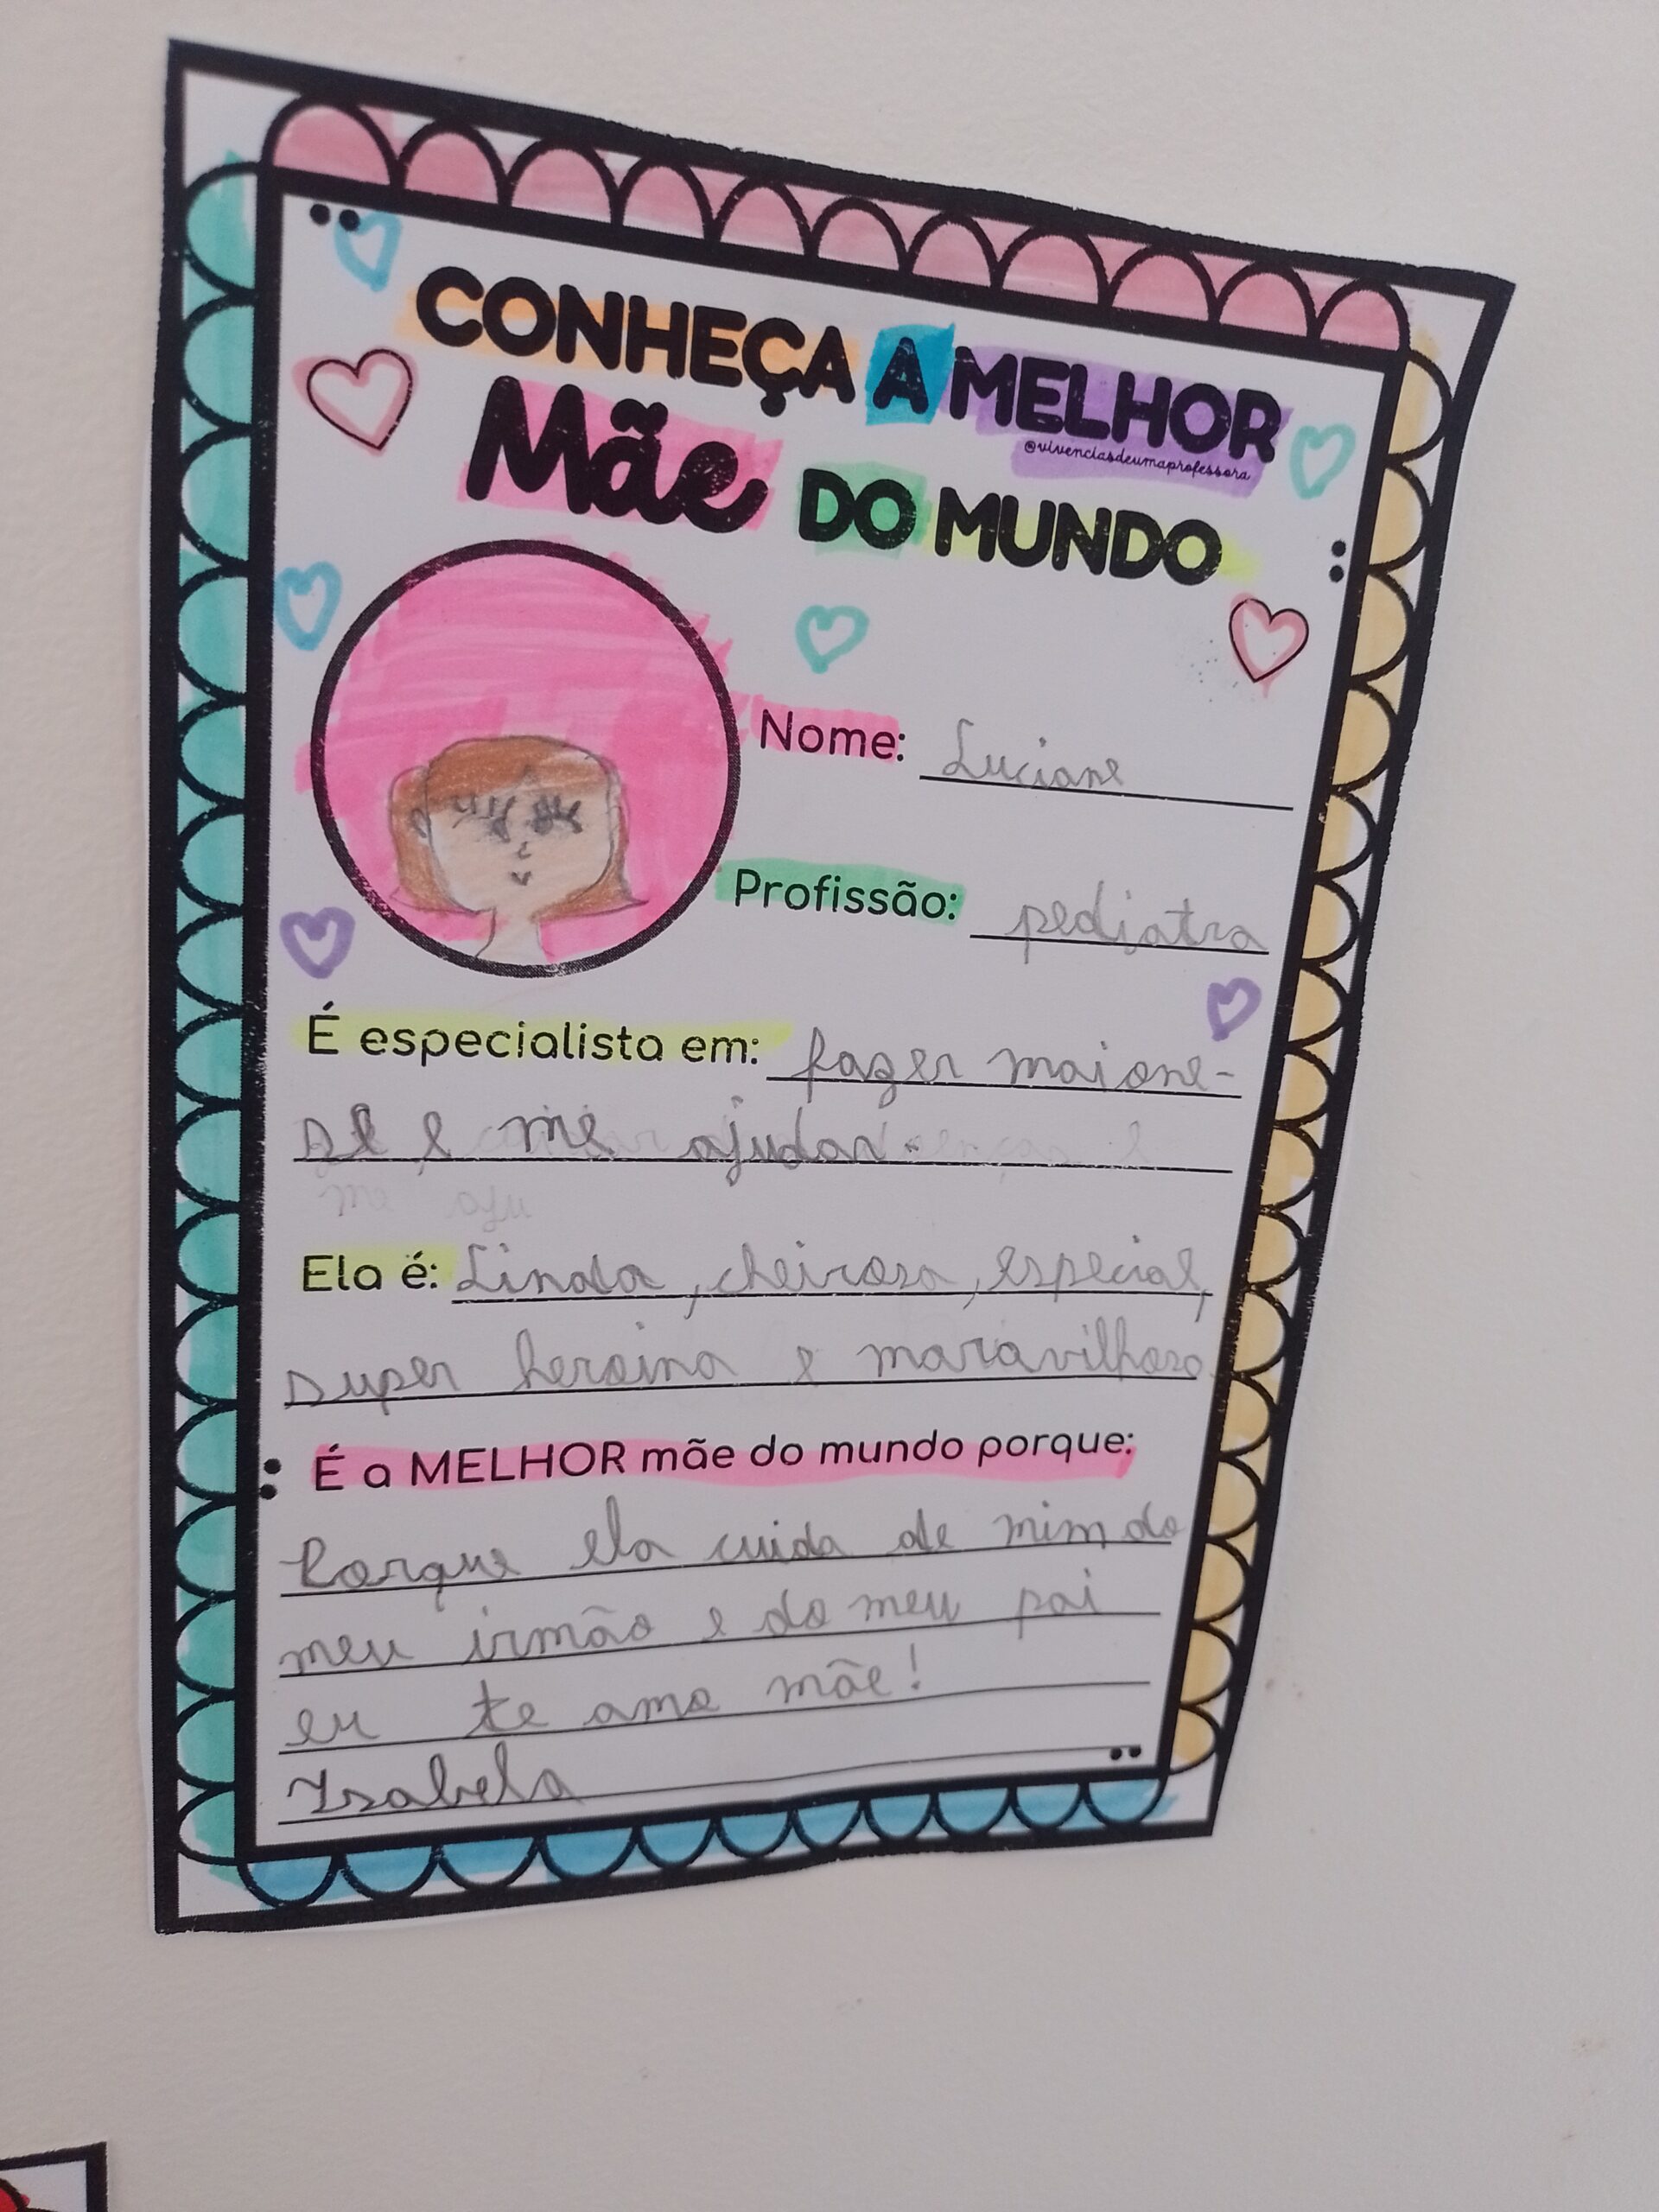 CONHEÇA A MELHOR
@vivenciasdeumaprofessora
Mãe DO MUNDO
Nome: Luciane
Profissão: pediatra
É especialista em: fazer maione-
se e me ajudar.
me aju
Ela é: Linda, cheirosa, especial,
super heroina e maravilhosa
É a MELHOR mãe do mundo porque:
Porque ela cuida de mim do
meu irmão e do meu pai
eu te amo mãe!
Isabela